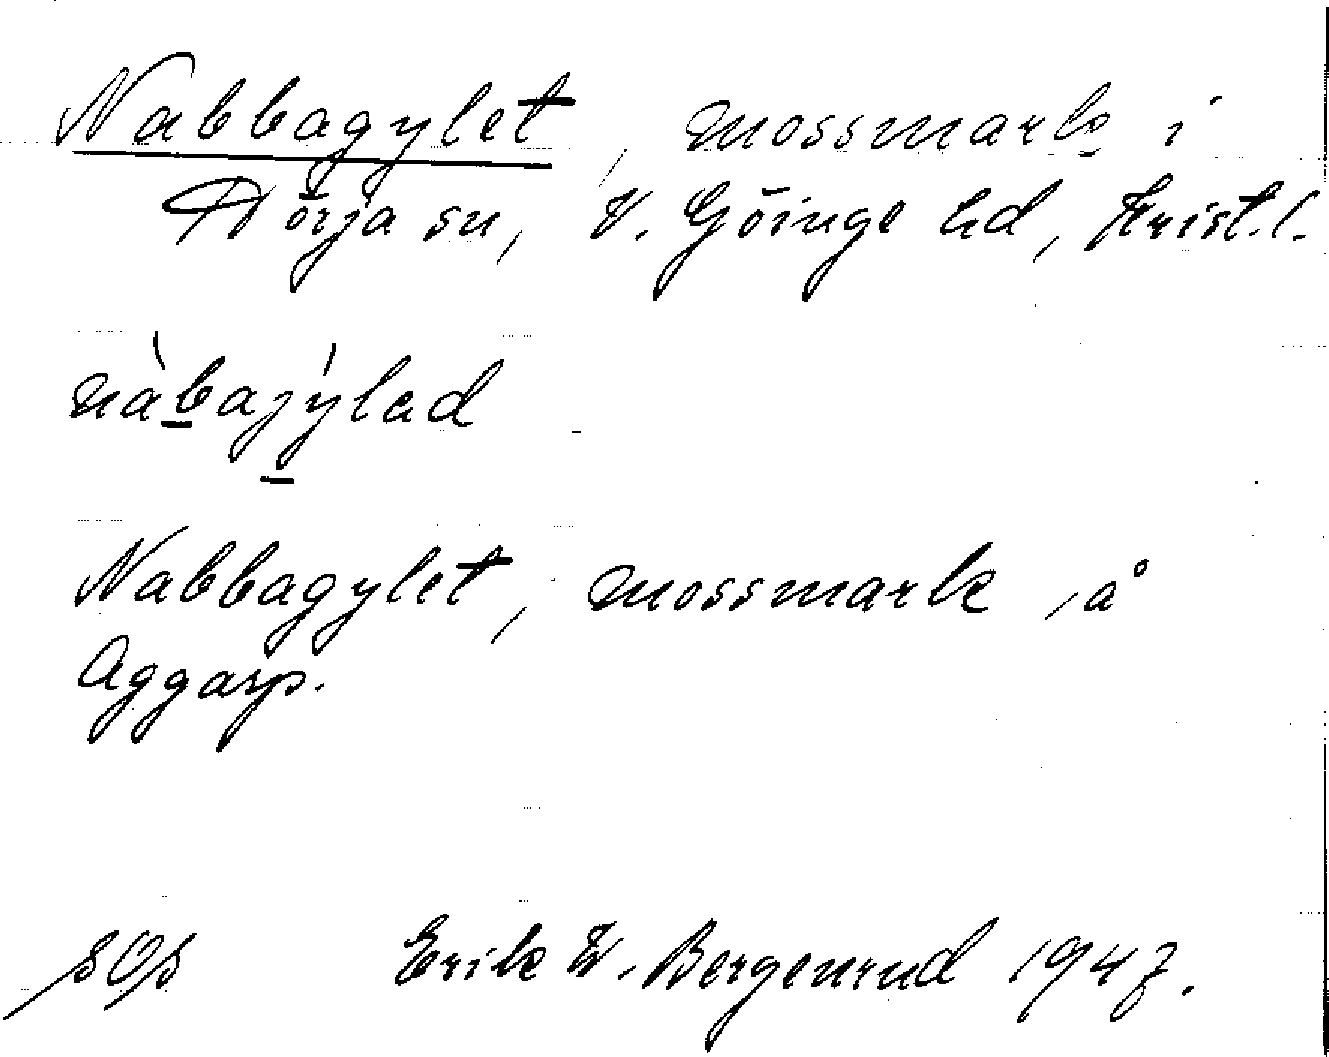 Nabbagylet, mossmark i
Hörja sn, V. Göinge hd, Krist. l.
nàbajýlad
Nabbagylet, mossmark, å
Aggarp.
Erik W. Bergenrud 1947.